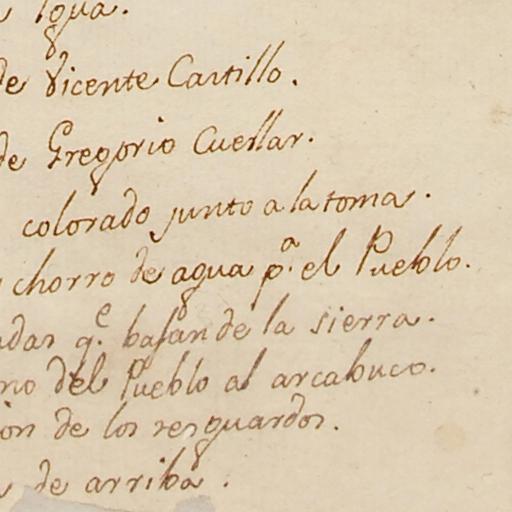 de Vicente Castillo.
de Gregorio Cuellar.
colorado junto a la toma.
chorro de agua p.ª el Pueblo.
adas q.e bajan de la sierra.
no del Pueblo al arcabuco.
ion de los resguardos.
de arriba.